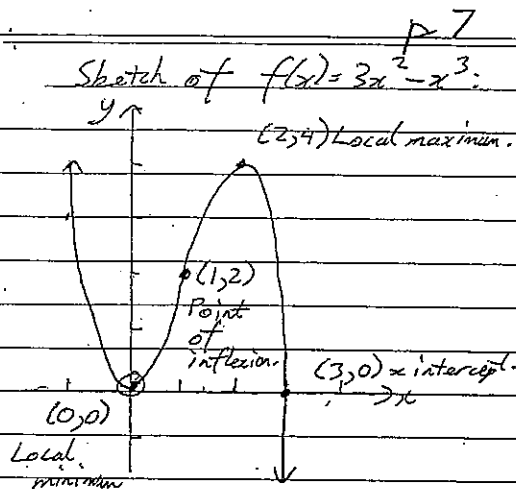 p 7
Sketch of f(x) = 3x² - x³:
y
(2,4) Local maximum.
(1,2)
Point
of
inflexion.
(3,0) x intercept.
x
(0,0)
Local
minimum